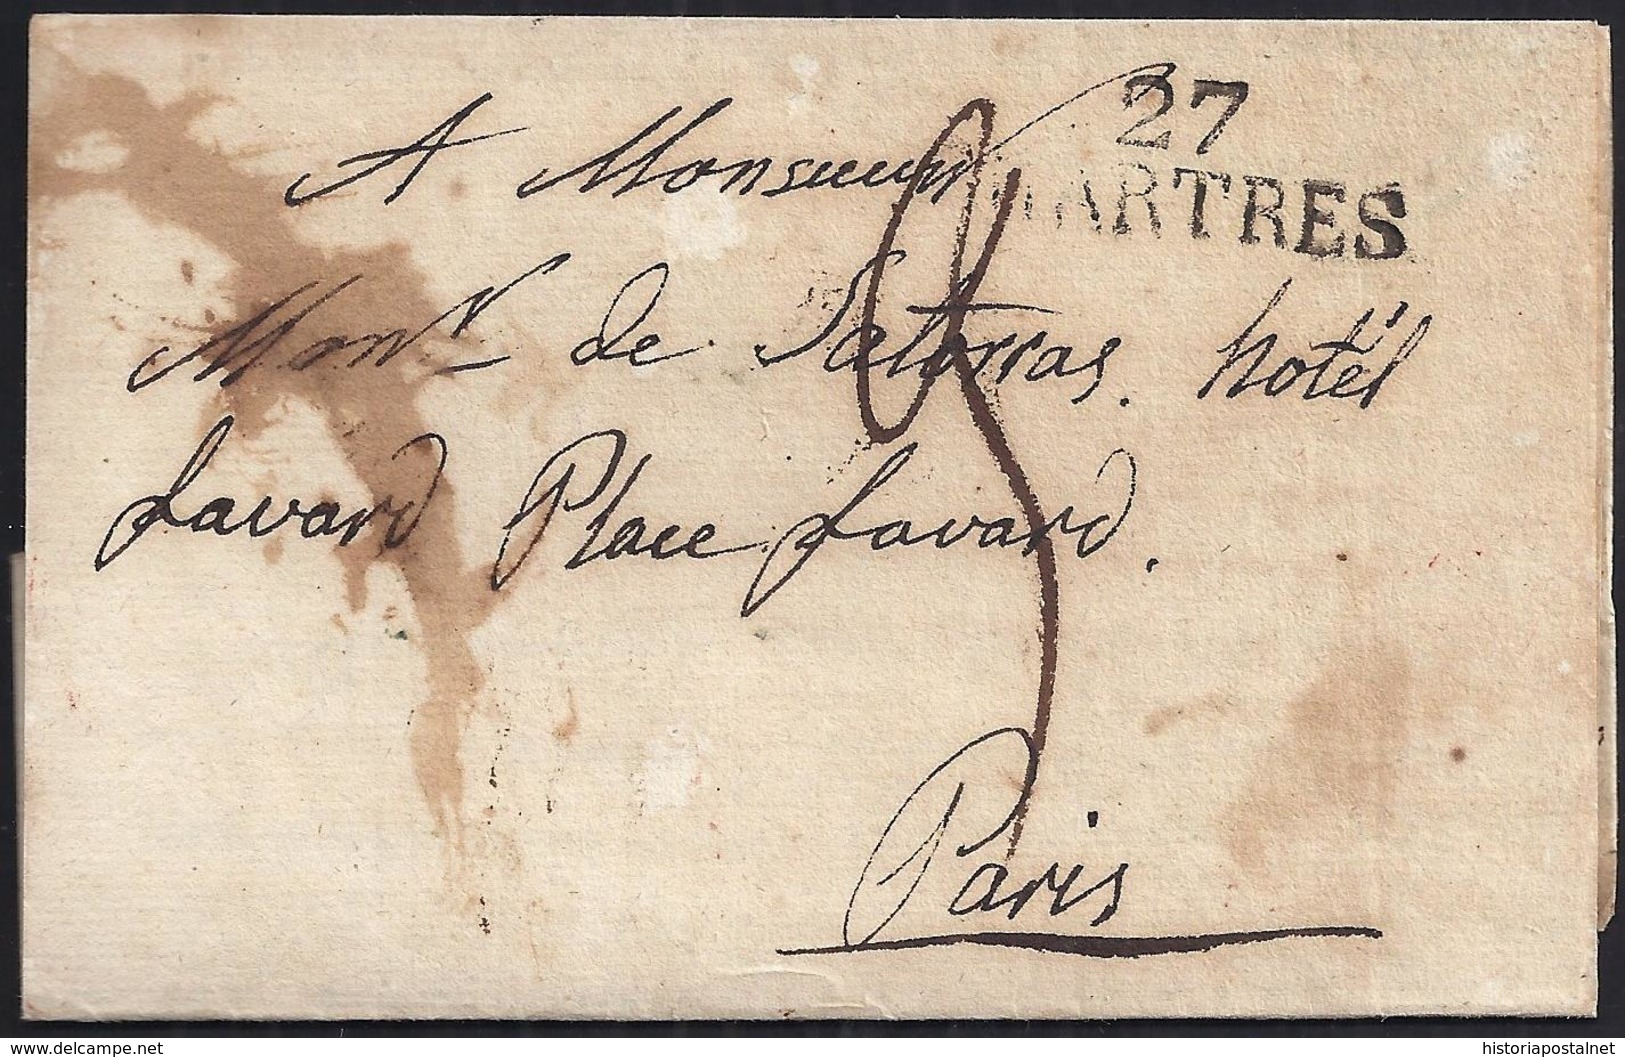 27
CHARTRES
A Monsieur
Monr de Satorras. hotél
favard Place favard.
Paris
www.delcampe.net
historiapostalnet